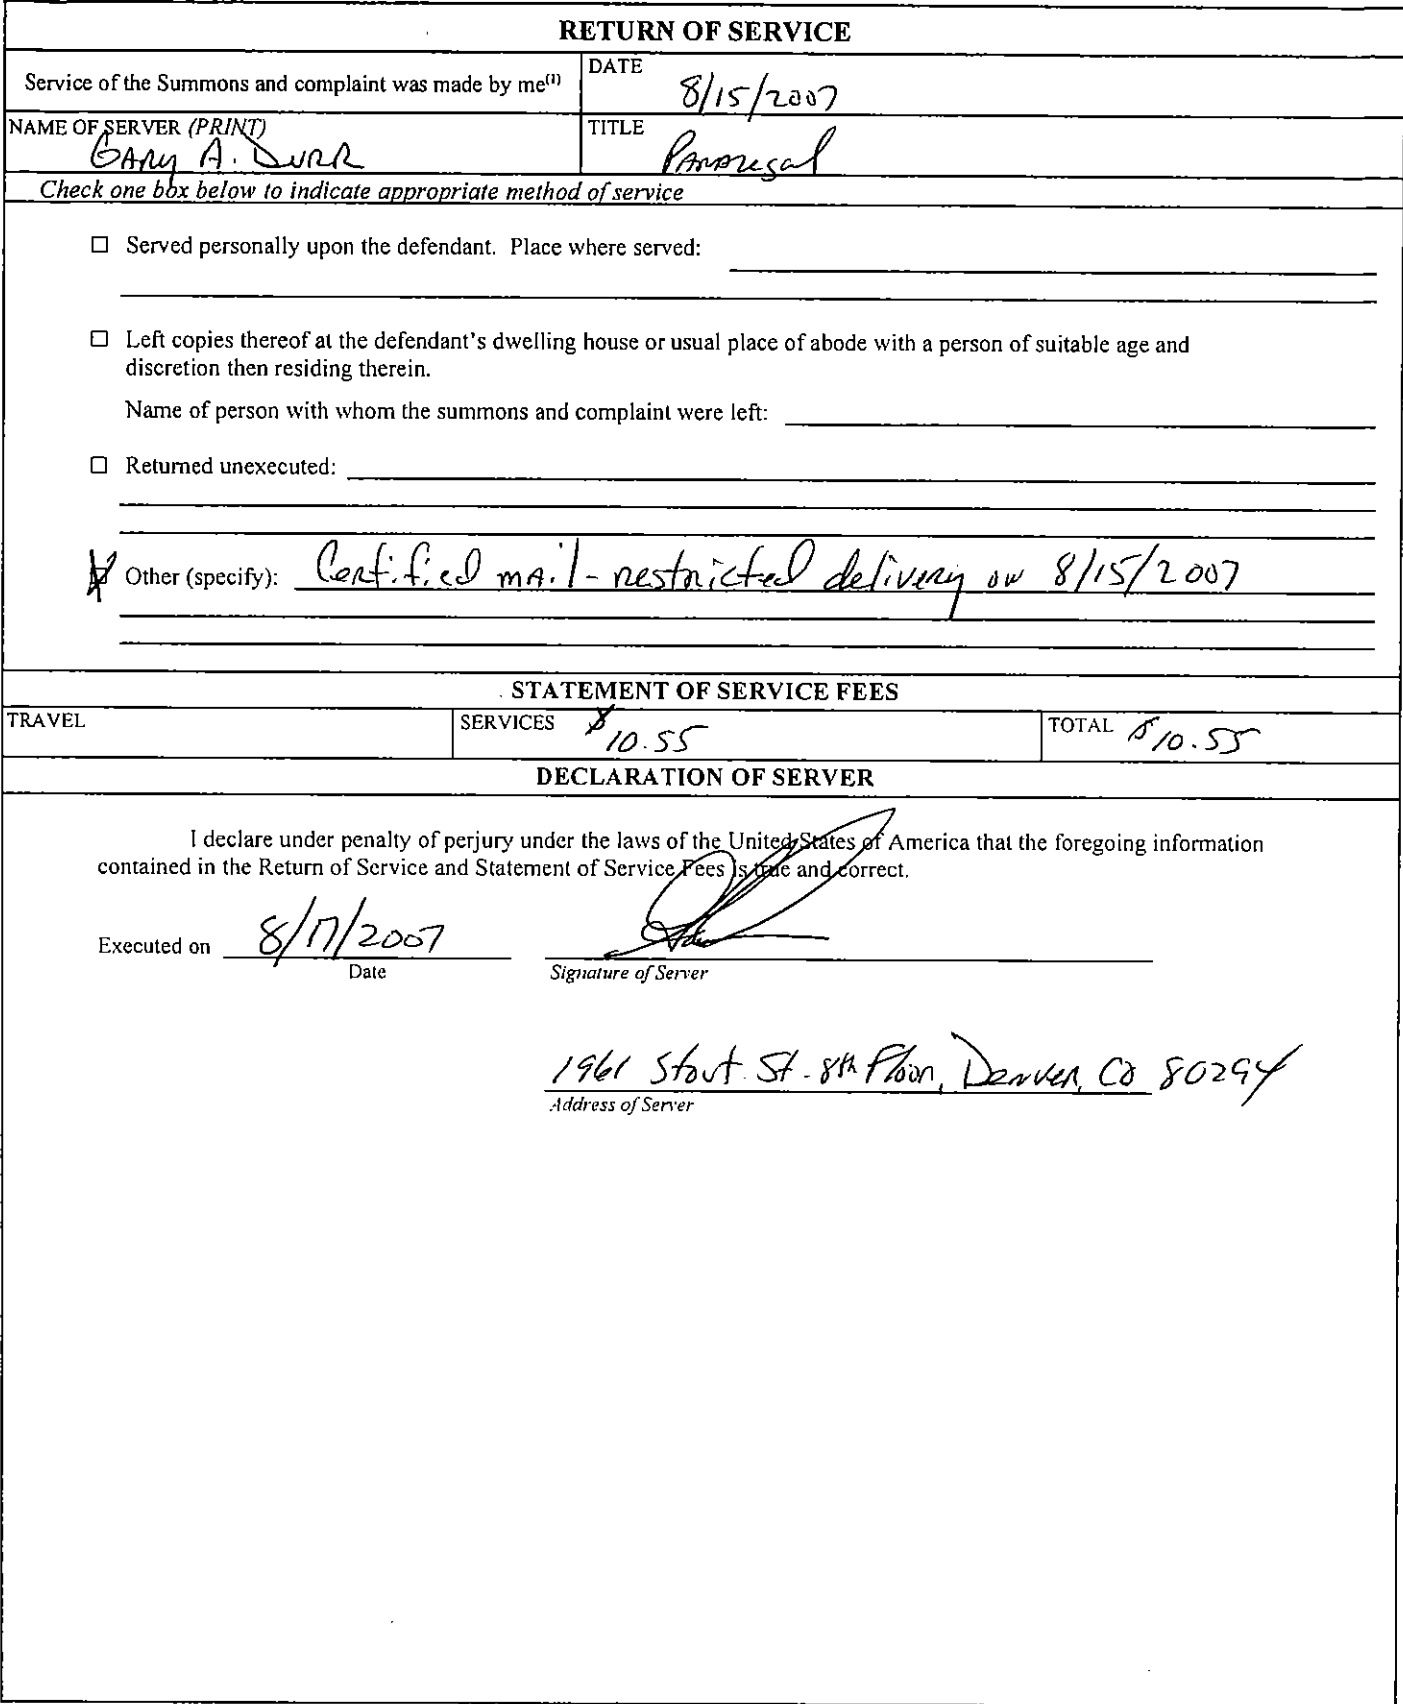 RETURN OF SERVICE
Service of the Summons and complaint was made by me(1)
DATE
8/15/2007
NAME OF SERVER (PRINT)
GARY A. DURR
TITLE
Paralegal
Check one box below to indicate appropriate method of service
☐ Served personally upon the defendant. Place where served:
☐ Left copies thereof at the defendant's dwelling house or usual place of abode with a person of suitable age and
discretion then residing therein.
Name of person with whom the summons and complaint were left:
☐ Returned unexecuted:
☒ Other (specify): Certified mail - restricted delivery on 8/15/2007
STATEMENT OF SERVICE FEES
TRAVEL
SERVICES $10.55
TOTAL $10.55
DECLARATION OF SERVER
I declare under penalty of perjury under the laws of the United States of America that the foregoing information
contained in the Return of Service and Statement of Service Fees is true and correct.
Executed on 8/17/2007
Date
Signature of Server
1961 Stout St. - 8th Floor, Denver, CO 80294
Address of Server